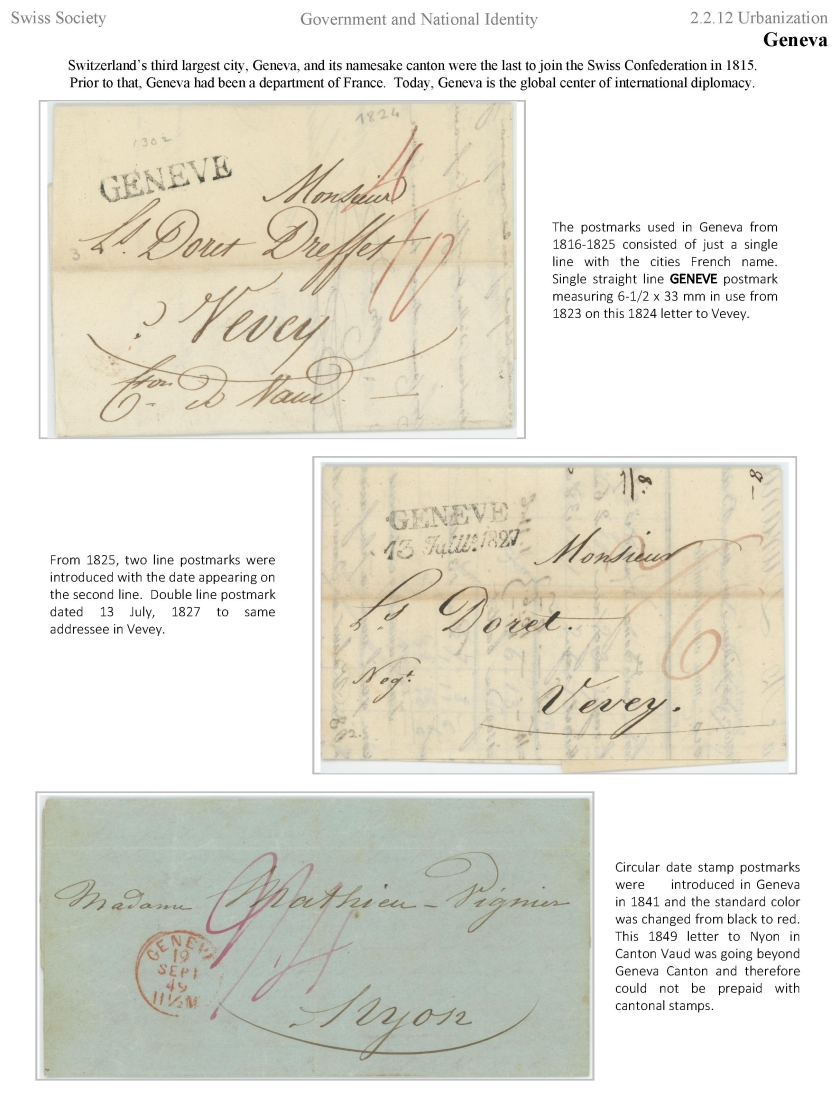 Swiss Society Government and National Identity 2.2.12 Urbanization
Geneva
Switzerland's third largest city, Geneva, and its namesake canton were the last to join the Swiss Confederation in 1815.
Prior to that, Geneva had been a department of France. Today, Geneva is the global center of international diplomacy.
1824
1302
GENEVE
Monsieur
Ls. Doret Dreffet
3
à Vevey
Cton. de Vaud
The postmarks used in Geneva from
1816-1825 consisted of just a single
line with the cities French name.
Single straight line GENEVE postmark
measuring 6-1/2 x 33 mm in use from
1823 on this 1824 letter to Vevey.
GENEVE
13 Juill. 1827
Monsieur
Ls Doret.
Negt.
Vevey.
From 1825, two line postmarks were
introduced with the date appearing on
the second line. Double line postmark
dated 13 July, 1827 to same
addressee in Vevey.
Madame Mathieu - Vignier
GENEVE
19
SEPT
49
11½M
Nyon
Circular date stamp postmarks
were introduced in Geneva
in 1841 and the standard color
was changed from black to red.
This 1849 letter to Nyon in
Canton Vaud was going beyond
Geneva Canton and therefore
could not be prepaid with
cantonal stamps.